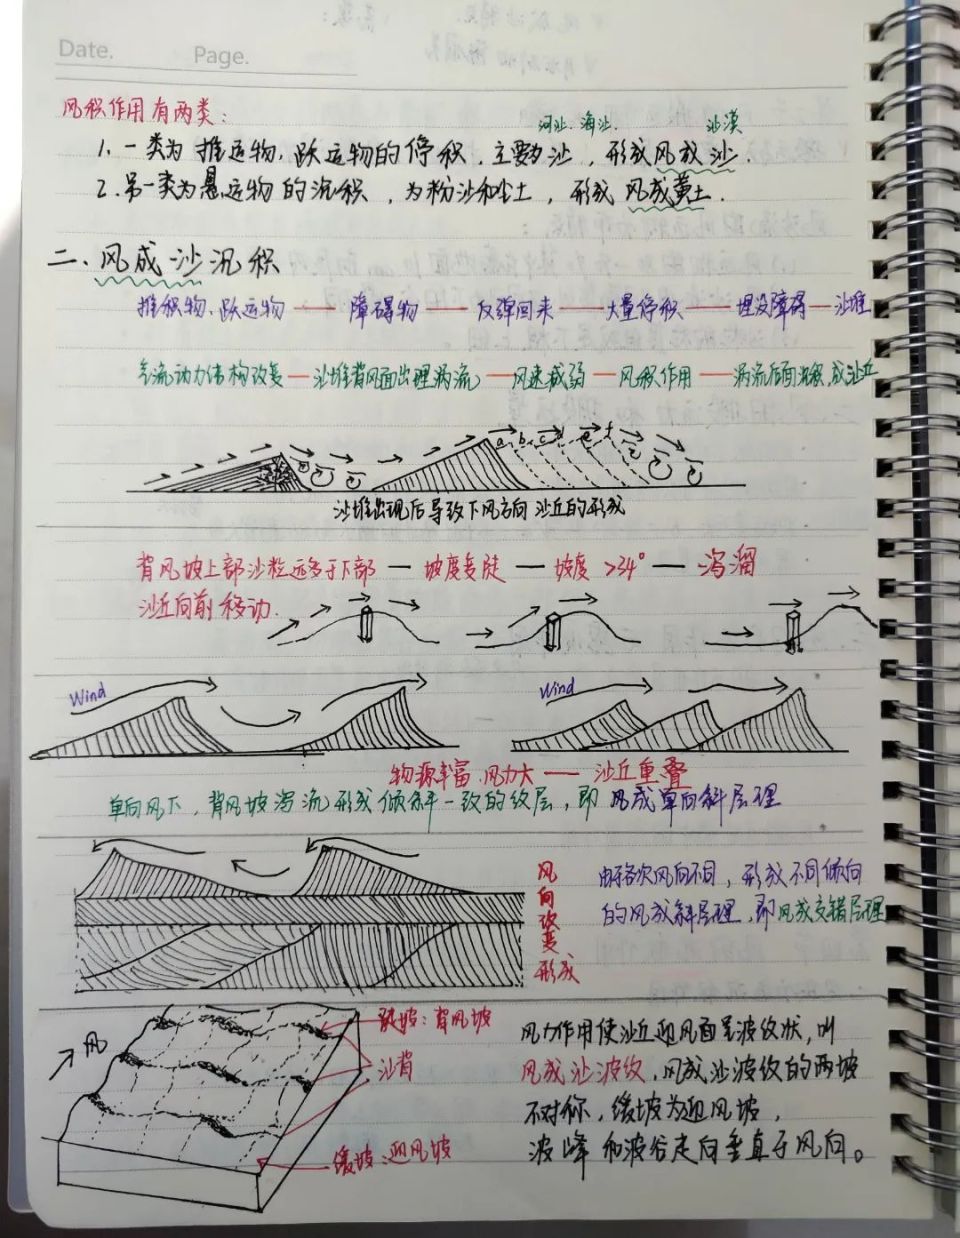 Date.    Page.
风积作用有两类：
河沙.海沙.    沙漠
1. 一类为推运物、跃运物的停积，主要为沙，形成风成沙.
2. 另一类为悬运物的沉积，为粉沙和尘土，形成风成黄土.
二、风成沙沉积
推积物、跃运物 — 障碍物 — 反弹回来 — 大量停积 — 埋没障碍 — 沙堆
气流动力结构改变 — 沙堆背风面出现涡流 — 风速减弱 — 风积作用 — 涡流后面沉积成沙丘
a b c d e f
沙堆出现后导致下风方向沙丘的形成
背风坡上部沙粒远多于下部 — 坡度变陡 — 坡度 >34° — 泻溜
沙丘向前移动.
Wind    Wind
物源丰富.风力大 — 沙丘重叠
单向风下，背风坡泻流形成倾斜一致的纹层，即风成单向斜层理
风向改变形成
由于各次风向不同，形成不同倾向
的风成斜层理，即风成交错层理
风
陡坡：背风坡
沙脊
缓坡：迎风坡
风力作用使沙丘迎风面呈波纹状，叫
风成沙波纹，风成沙波纹的两坡
不对称，缓坡为迎风坡，
波峰和波谷走向垂直于风向。